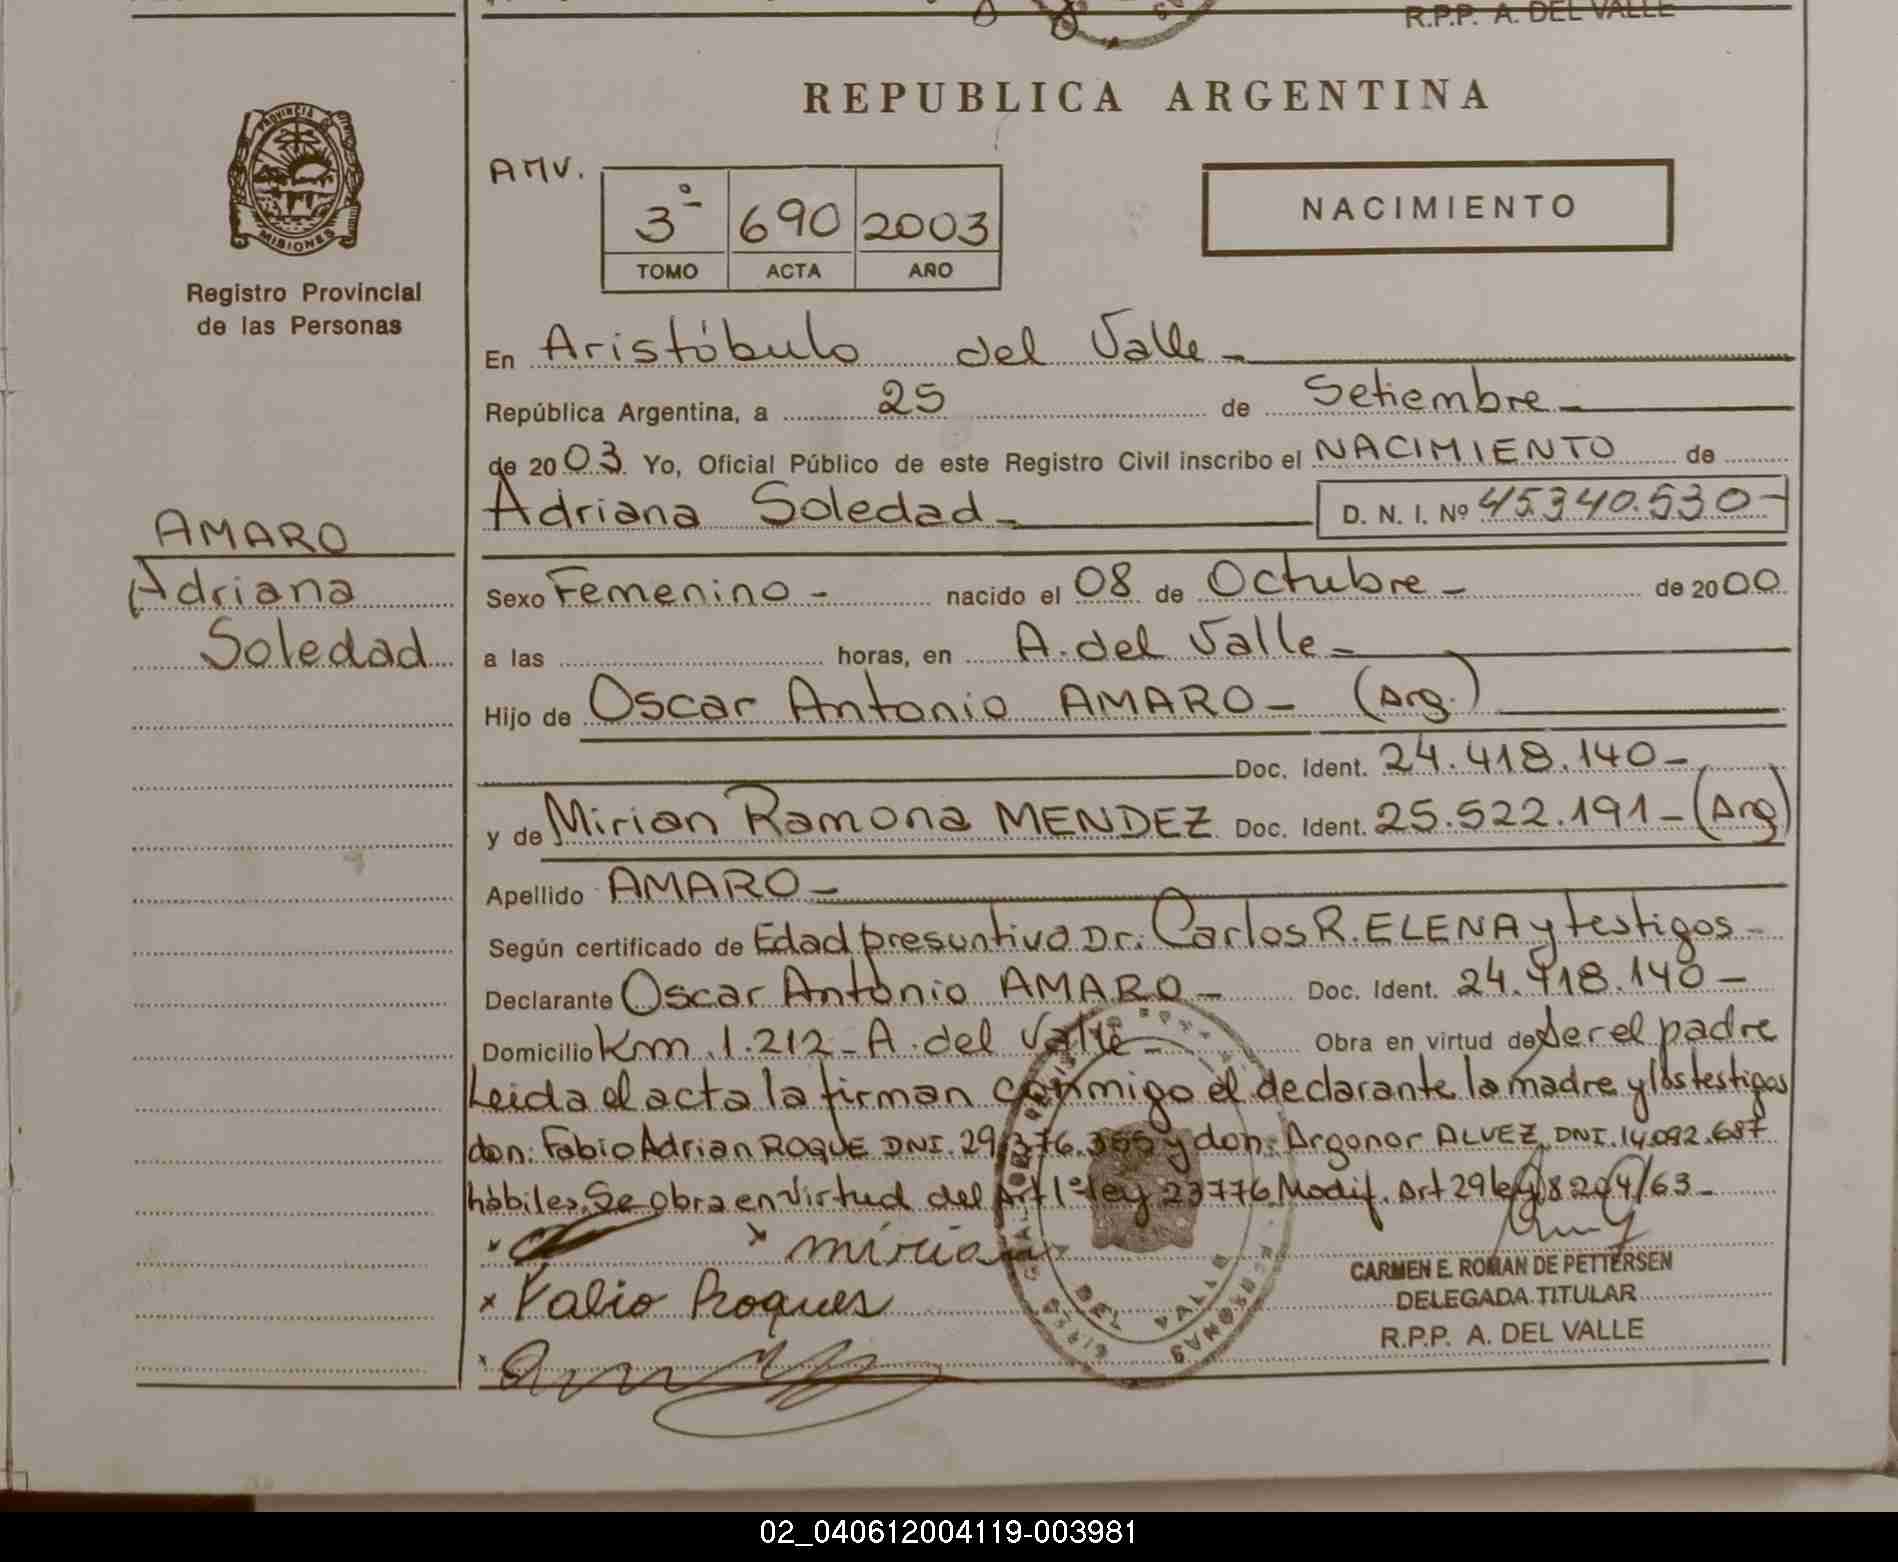 R.P.P. A. DEL VALLE
REPUBLICA ARGENTINA
PROVINCIA DE
MISIONES
Registro Provincial
de las Personas
AMV.
3º 690 2003
TOMO ACTA AÑO
NACIMIENTO
En Aristóbulo del Valle -
República Argentina, a 25 de Setiembre -
de 2003. Yo, Oficial Público de este Registro Civil inscribo el NACIMIENTO de
Adriana Soledad - D. N. I. Nº 45.340.530-
AMARO
Adriana
Soledad
Sexo Femenino - nacido el 08 de Octubre - de 2000.
a las horas, en A. del Valle -
Hijo de Oscar Antonio AMARO - (Arg.)
Doc. Ident. 24.418.140 -
y de Mirian Ramona MENDEZ Doc. Ident. 25.522.191 - (Arg
Apellido AMARO -
Según certificado de Edad presuntiva Dr. Carlos R. ELENA y testigos -
Declarante Oscar Antonio AMARO - Doc. Ident. 24.418.140 -
Domicilio Km 1.212 - A. del Valle - Obra en virtud de Ser el padre
Leida el acta la firman conmigo el declarante la madre y los testigos
don: Fabio Adrian ROQUE DNI. 29.376.355 y don: Argonor ALVEZ DNI. 14.092.687
hábiles. Se obra en virtud del Art 1º ley 23776 Modif. Art 29 ley 8204/63 -
x x miria
x Fabio Roques
x
CARMEN E. ROMAN DE PETTERSEN
DELEGADA TITULAR
R.P.P. A. DEL VALLE
DEL VALLE
02_040612004119-003981